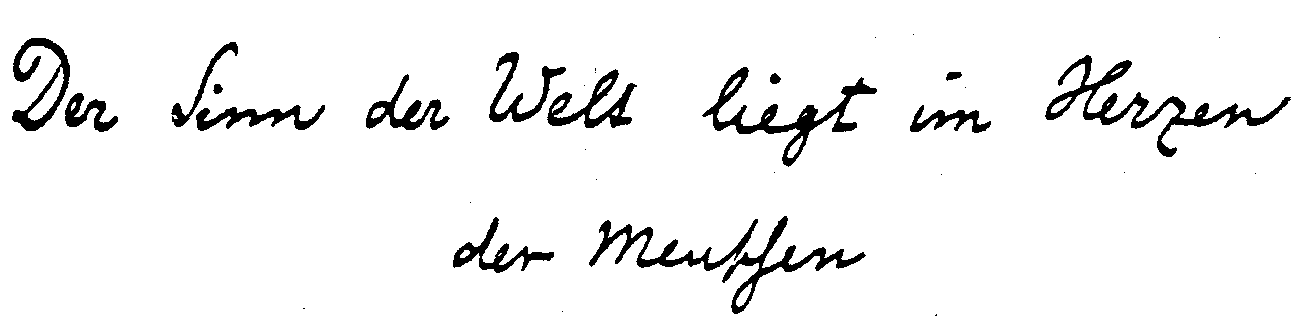 Der Sinn der Welt liegt im Herzen
der Menschen